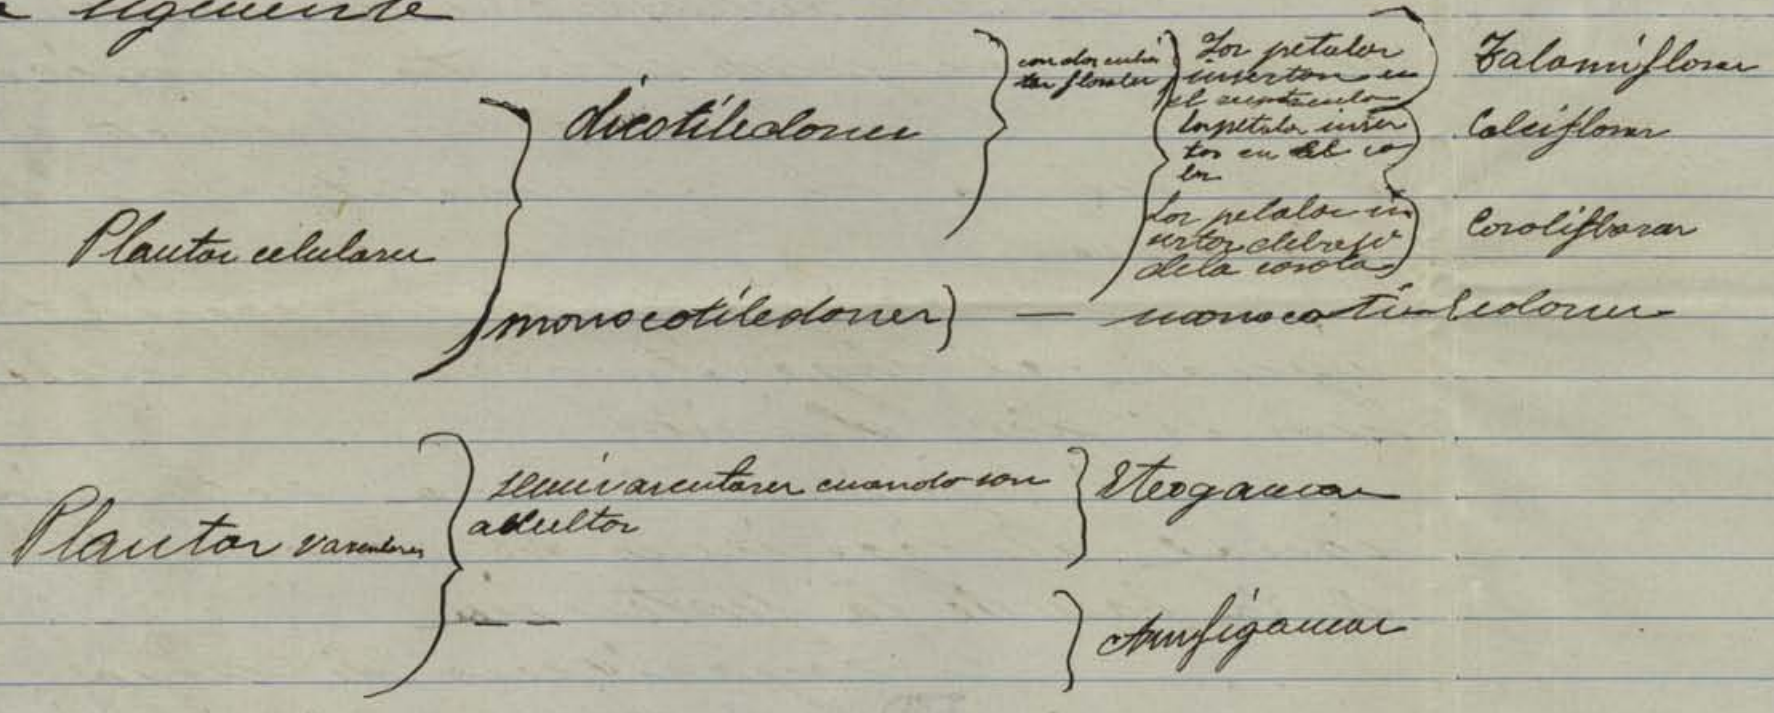 siguiente
Plantas celulares
dicotiledones
con dos cubier
tas florales
Los petalos
insertos en
el receptaculo
Talamifloras
los petalos inser
tos en el ca
liz
Calcifloras
Los petalos in
sertos debajo
de la corola
Corolifloras
monocotiledones — monocotiledones
Plantas vasculares
semivasculares cuando son
adultos
Eteogamas
— —
Amfigamas